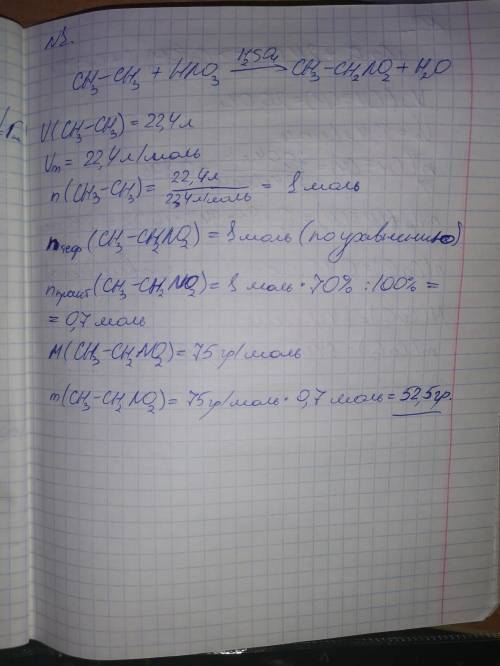 CH₃–CH₃ + HNO₃ H₂SO₄→ CH₃–CH₂NO₂ + H₂O
V(CH₃–CH₃) = 22,4 л
Vm = 22,4 л/моль
n(CH₃–CH₃) = 22,4 л / 22,4 л/моль = 1 моль
nтеор(CH₃–CH₂NO₂) = 1 моль (по уравнению)
nпракт(CH₃–CH₂NO₂) = 1 моль · 70% : 100% =
= 0,7 моль
M(CH₃–CH₂NO₂) = 75 гр/моль
m(CH₃–CH₂NO₂) = 75 гр/моль · 0,7 моль = 52,5 гр.